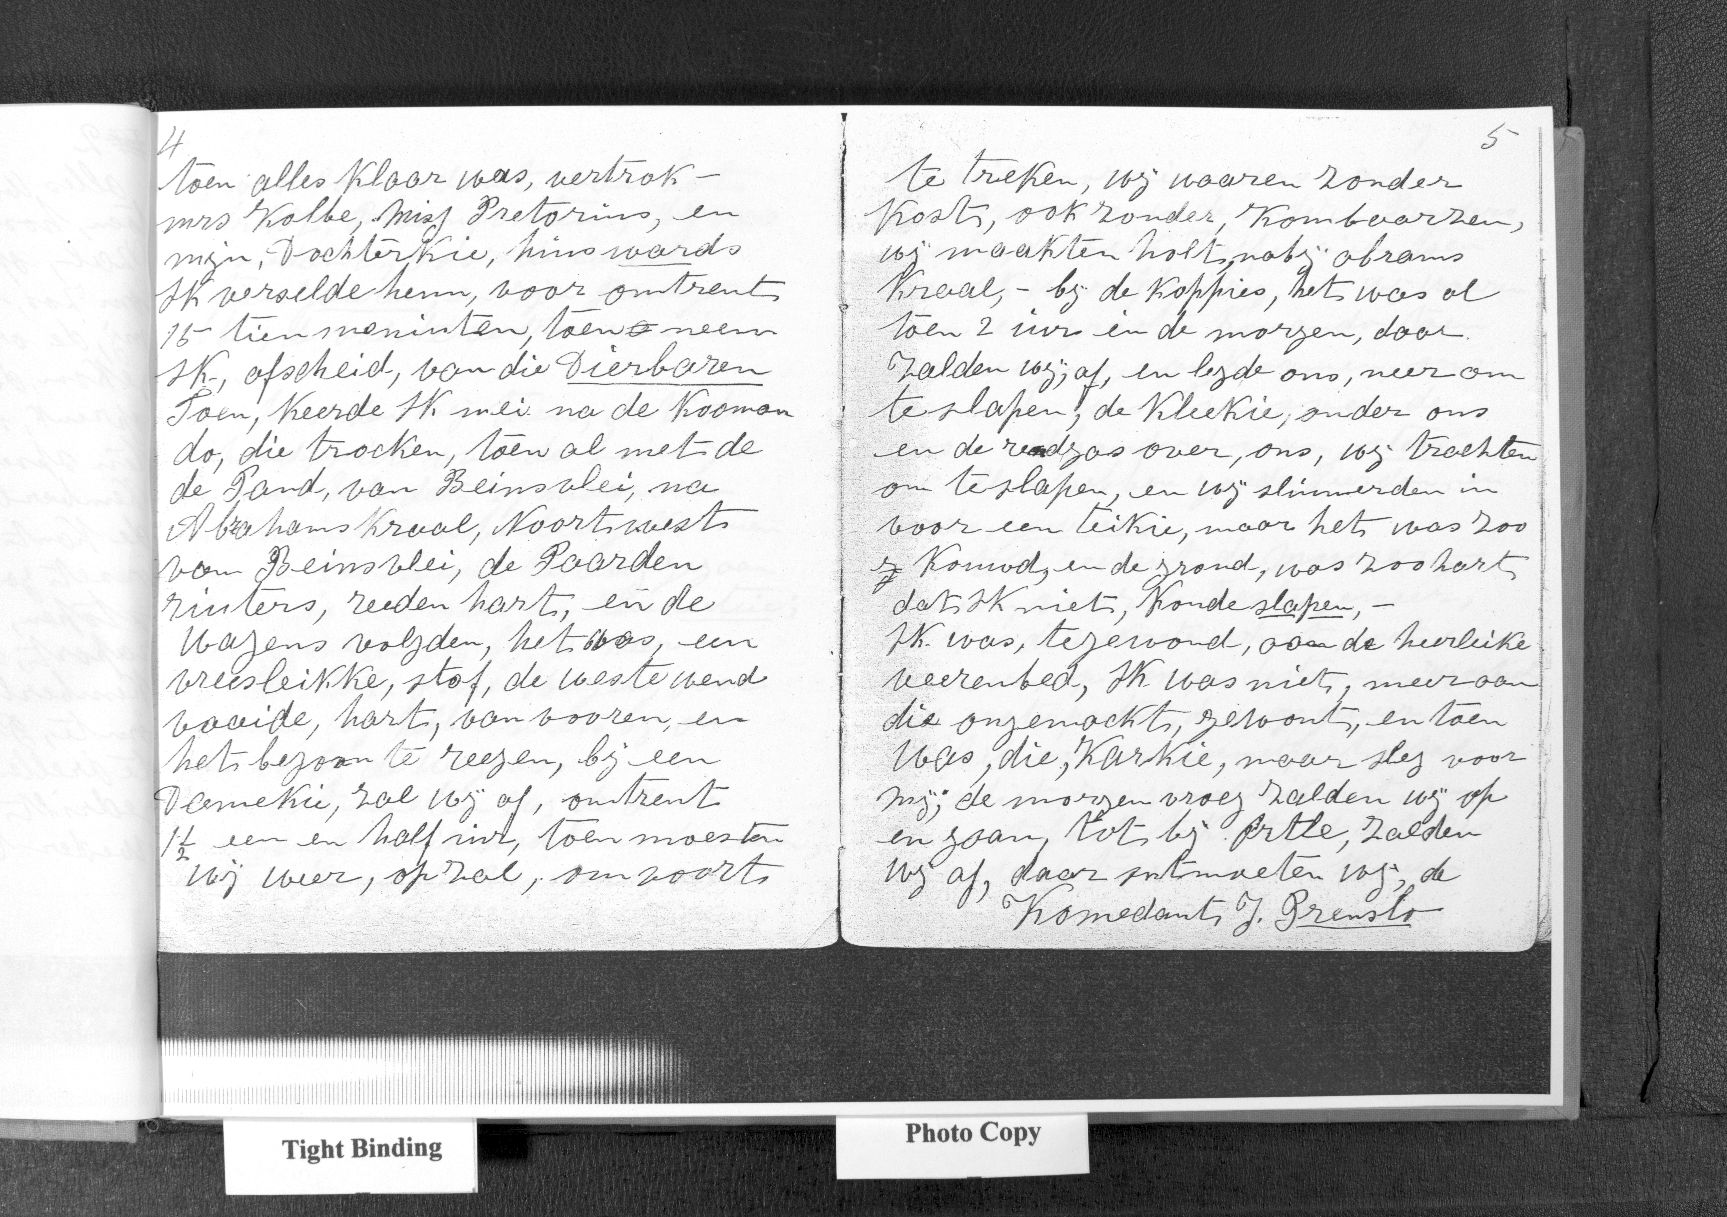 4
toen alles klaar was, vertrok –
mrs Kolbe, Miss Pretorius, en
mijn, Dochterkie, huiswards
Ik verselde henn, voor omtrent
15 tien meninten, toen neem
Ik, afscheid, van die Dierbaren
Toen, Keerde Ik mei na de Kooman
do, die trocken, toen al met de
de Pand, van Beinsvlei, na
Abrahams Kraal, Noort west
van Beinsvlei, de Paarden
rinters, reeden hart, en de
wagens volgden, het was, een
vreesleikke, stof, de weste wend
vaaide, hart, van vooren, en
het begoon te reegen, bij een
Damekie, zal wij af, omtrent
1½ een en half uur, toen moesten
wij weer, op zal, om voort
5
te treken, wij waaren zonder
Kost, ook zonder, Kombaarzen,
wij maakten holt, nabij abrams
Kraal, – bij de Koppies, het was al
toen 2 uur in de morgen, daar
Zalden wij, af, en legde ons, neer om
te slapen, de Kleekie, onder ons
en de rendgas over, ons, wij trachten
om te slapen, en wij slimmerden in
voor een teikie, maar het was zoo
Kouwd, en de grond, was zoo hart
dat Ik niet, Konde slapen, –
Ik was, tegewond, aan de heerleike
veerenbed, Ik was niet, meer aan
die ongemackt, gewont, en toen
was, die, Karkie, maar sleg voor
mij; de morgen vroeg Zalden wij op
en gaan, tot bij Artle, Zalden
wij af, daar ontmoeten wij, de
Komedant J. Prensło
Tight Binding
Photo Copy